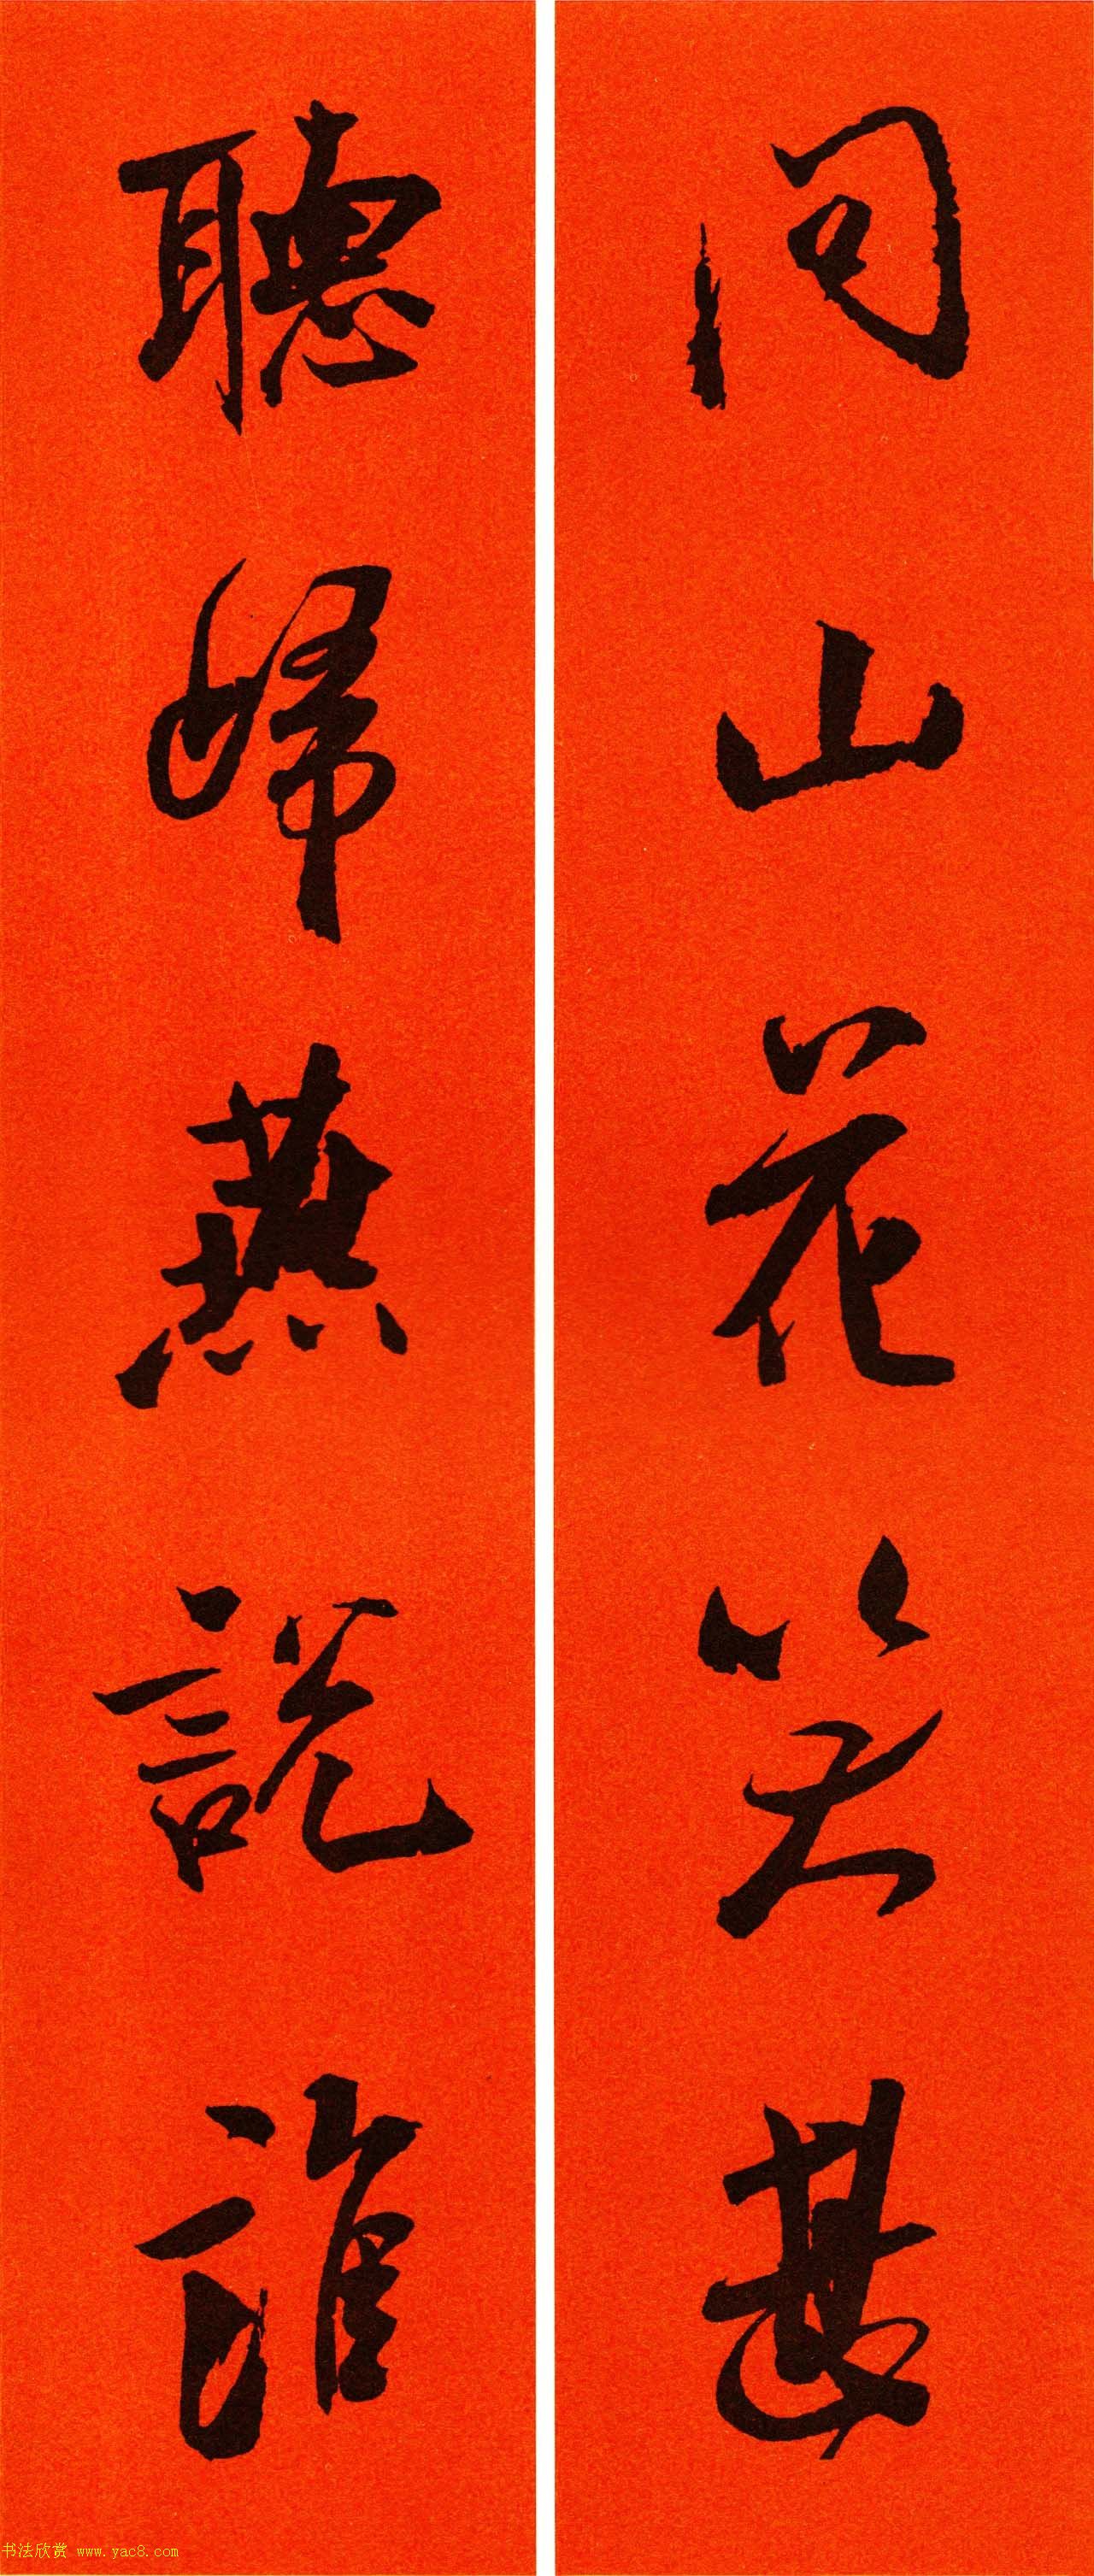 問山花笑甚
聽歸燕說誰
书法欣赏 www.yac8.com